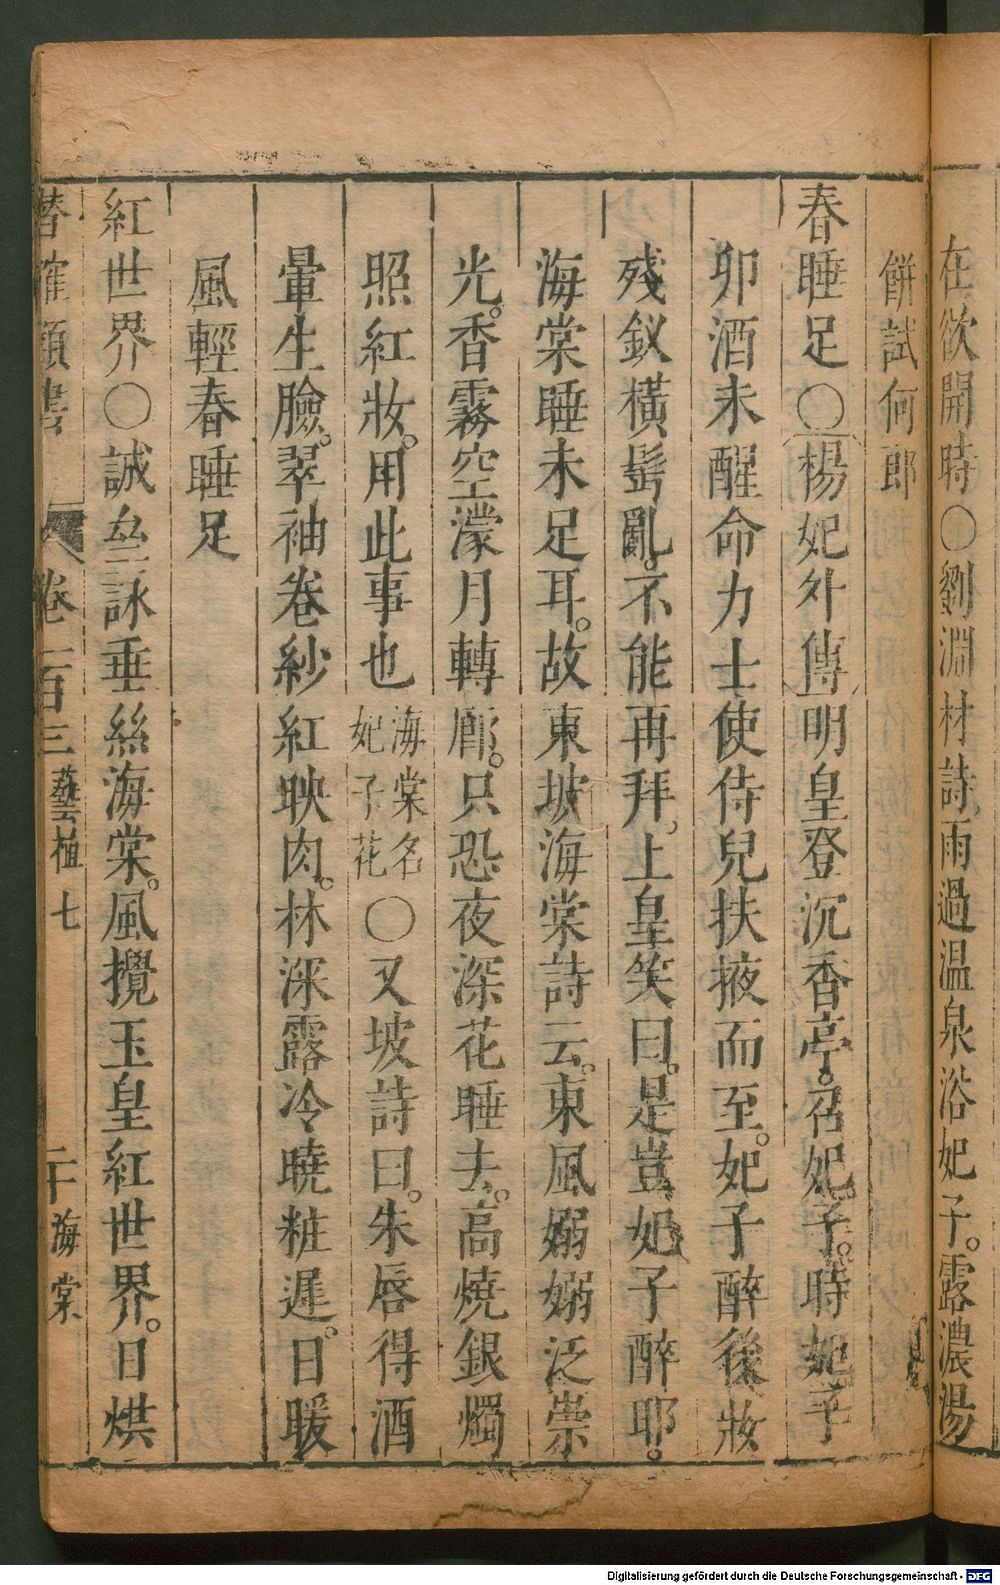 在欲開時〇劉淵材詩雨過温泉浴妃子。露濃湯
餅試何郎
春睡足〇楊妃外傳明皇登沉香亭。召妃子。時妃子
卯酒未醒命力士使侍兒扶掖而至。妃子醉後妝
殘釵橫鬂亂。不能再拜。上皇笑曰。是豈妃子醉耶。
海棠睡未足耳。故東坡海棠詩云。東風嫋嫋泛崇
光。香霧空濛月轉廊。只恐夜深花睡去。高燒銀燭
照紅妝。用此事也海棠名妃子花〇又坡詩曰。朱唇得酒
暈生臉。翠袖卷紗紅映肉。林深露冷曉粧遲。日暖
風輕春睡足
紅世界〇誠亝詠垂絲海棠。風攪玉皇紅世界。日烘
替確類書 卷一百三 藝植七 二十 海棠
Digitalisierung gefördert durch die Deutsche Forschungsgemeinschaft - DFG